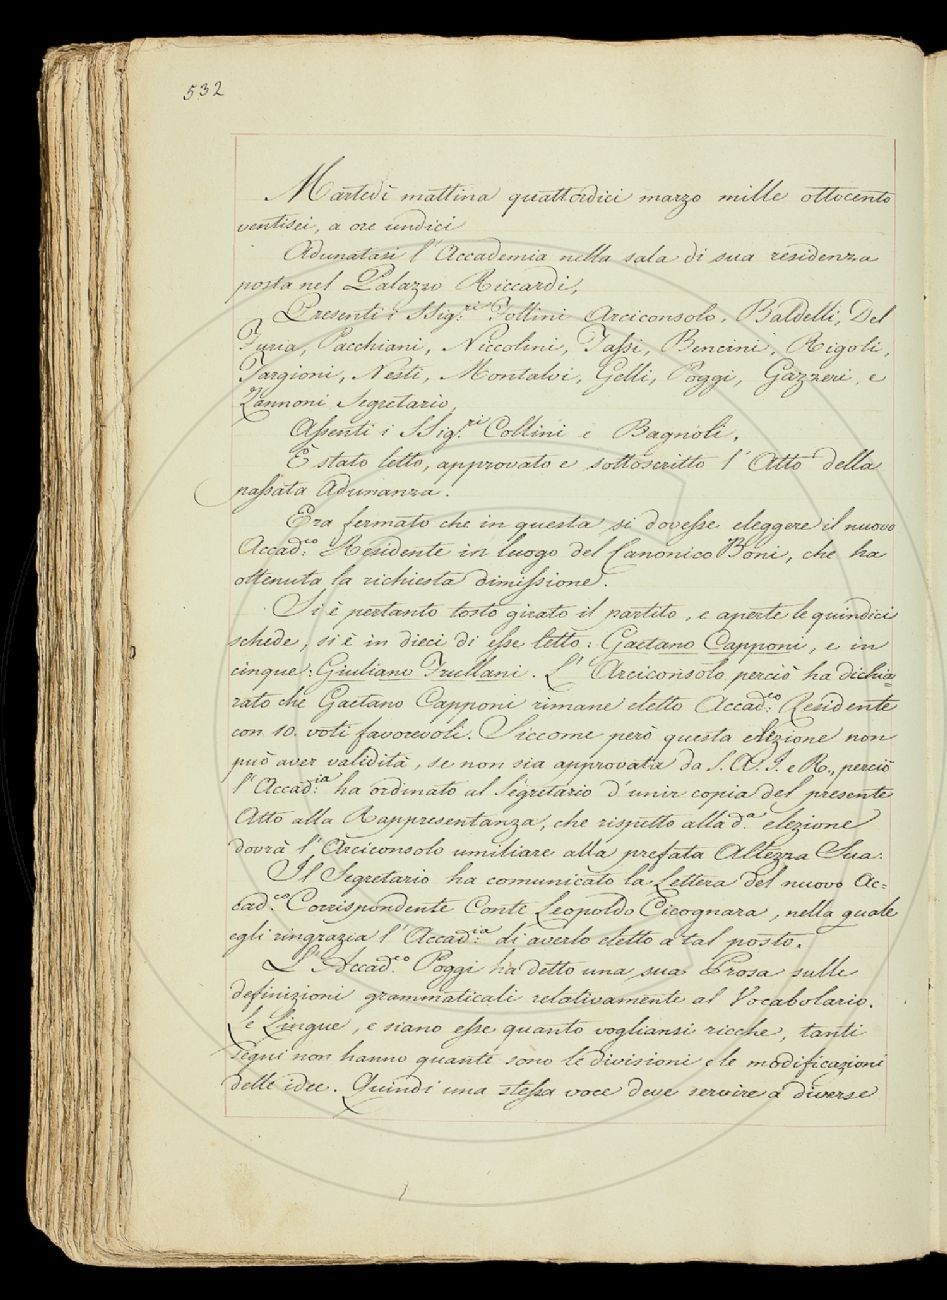 532
Martedì mattina quattordici marzo mille ottocento
ventisei, a ore undici
Adunatasi l'Accademia nella sala di sua residenza
posta nel Palazzo Riccardi,
Presenti i SSig.ri Follini Arciconsolo, Baldelli, Del
Furia, Pacchiani, Niccolini, Tassi, Bencini, Rigoli,
Targioni, Nesti, Montalvi, Gelli, Poggi, Gazzeri, e
Zannoni Segretario,
Assenti i SSig.ri Collini e Bagnoli.
È stato letto, approvato e sottoscritto l'Atto della
passata Adunanza.
Era fermato che in questa si dovesse eleggere il nuovo
Accad.co Residente in luogo del Canonico Boni, che ha
ottenuta la richiesta dimissione.
Si è pertanto tosto girato il partito, e aperte le quindici
schede, si è in dieci di esse letto: Gaetano Capponi, e in
cinque: Giuliano Frullani. L'Arciconsolo perciò ha dichia=
rato che Gaetano Capponi rimane eletto Accad.co Residente
con 10. voti favorevoli. Siccome però questa elezione non
può aver validità, se non sia approvata da S. A. I. e R., perciò
l'Accad.ia ha ordinato al Segretario d'unir copia del presente
Atto alla Rappresentanza, che rispetto alla d.a elezione
dovrà l'Arciconsolo umiliare alla prefata Altezza Sua.
Il Segretario ha comunicato la Lettera del nuovo Ac=
cad.co Corrispondente Conte Leopoldo Cicognara, nella quale
egli ringrazia l'Accad.ia di averlo eletto a tal posto.
L'Accad.co Poggi ha detto una sua Prosa sulle
definizioni grammaticali relativamente al Vocabolario.
Le Lingue, e siano esse quanto vogliansi ricche, tanti
segni non hanno quante sono le divisioni e le modificazioni
delle idee. Quindi una stessa voce deve servire a diverse